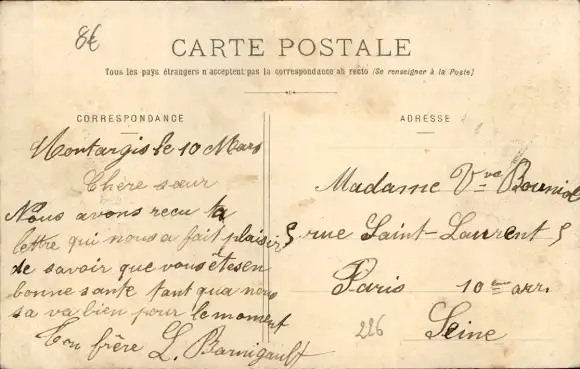 8€
CARTE POSTALE
Tous les pays étrangers n'acceptent pas la correspondance au recto (Se renseigner à la Poste)
CORRESPONDANCE
Montargis le 10 Mars
Chère sœur
Nous avons reçu ta
lettre qui nous a fait plaisir
de savoir que vous êtes en
bonne sante tant qua nous
sa va bien pour le moment
Ton frère L. Barnigault
ADRESSE
Madame Vve
5 rue Saint-Laurent 5
Paris 10eme arr.
Seine
226